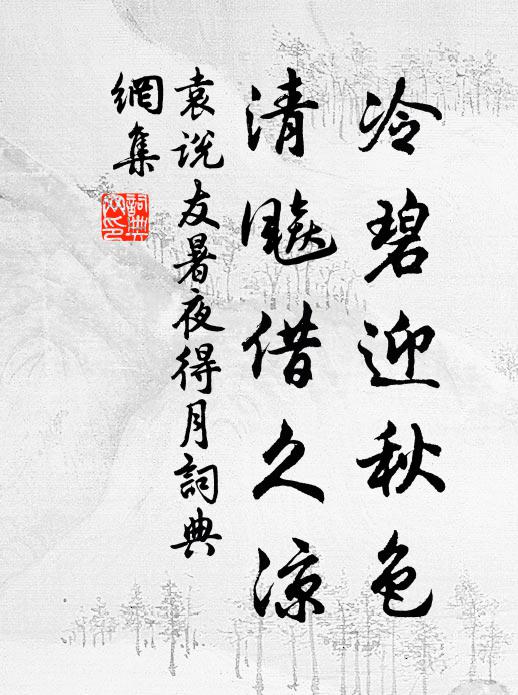 冷碧迎秋色
清飈借久涼
袁説友暑夜得月詞典
網集
詞典
网印